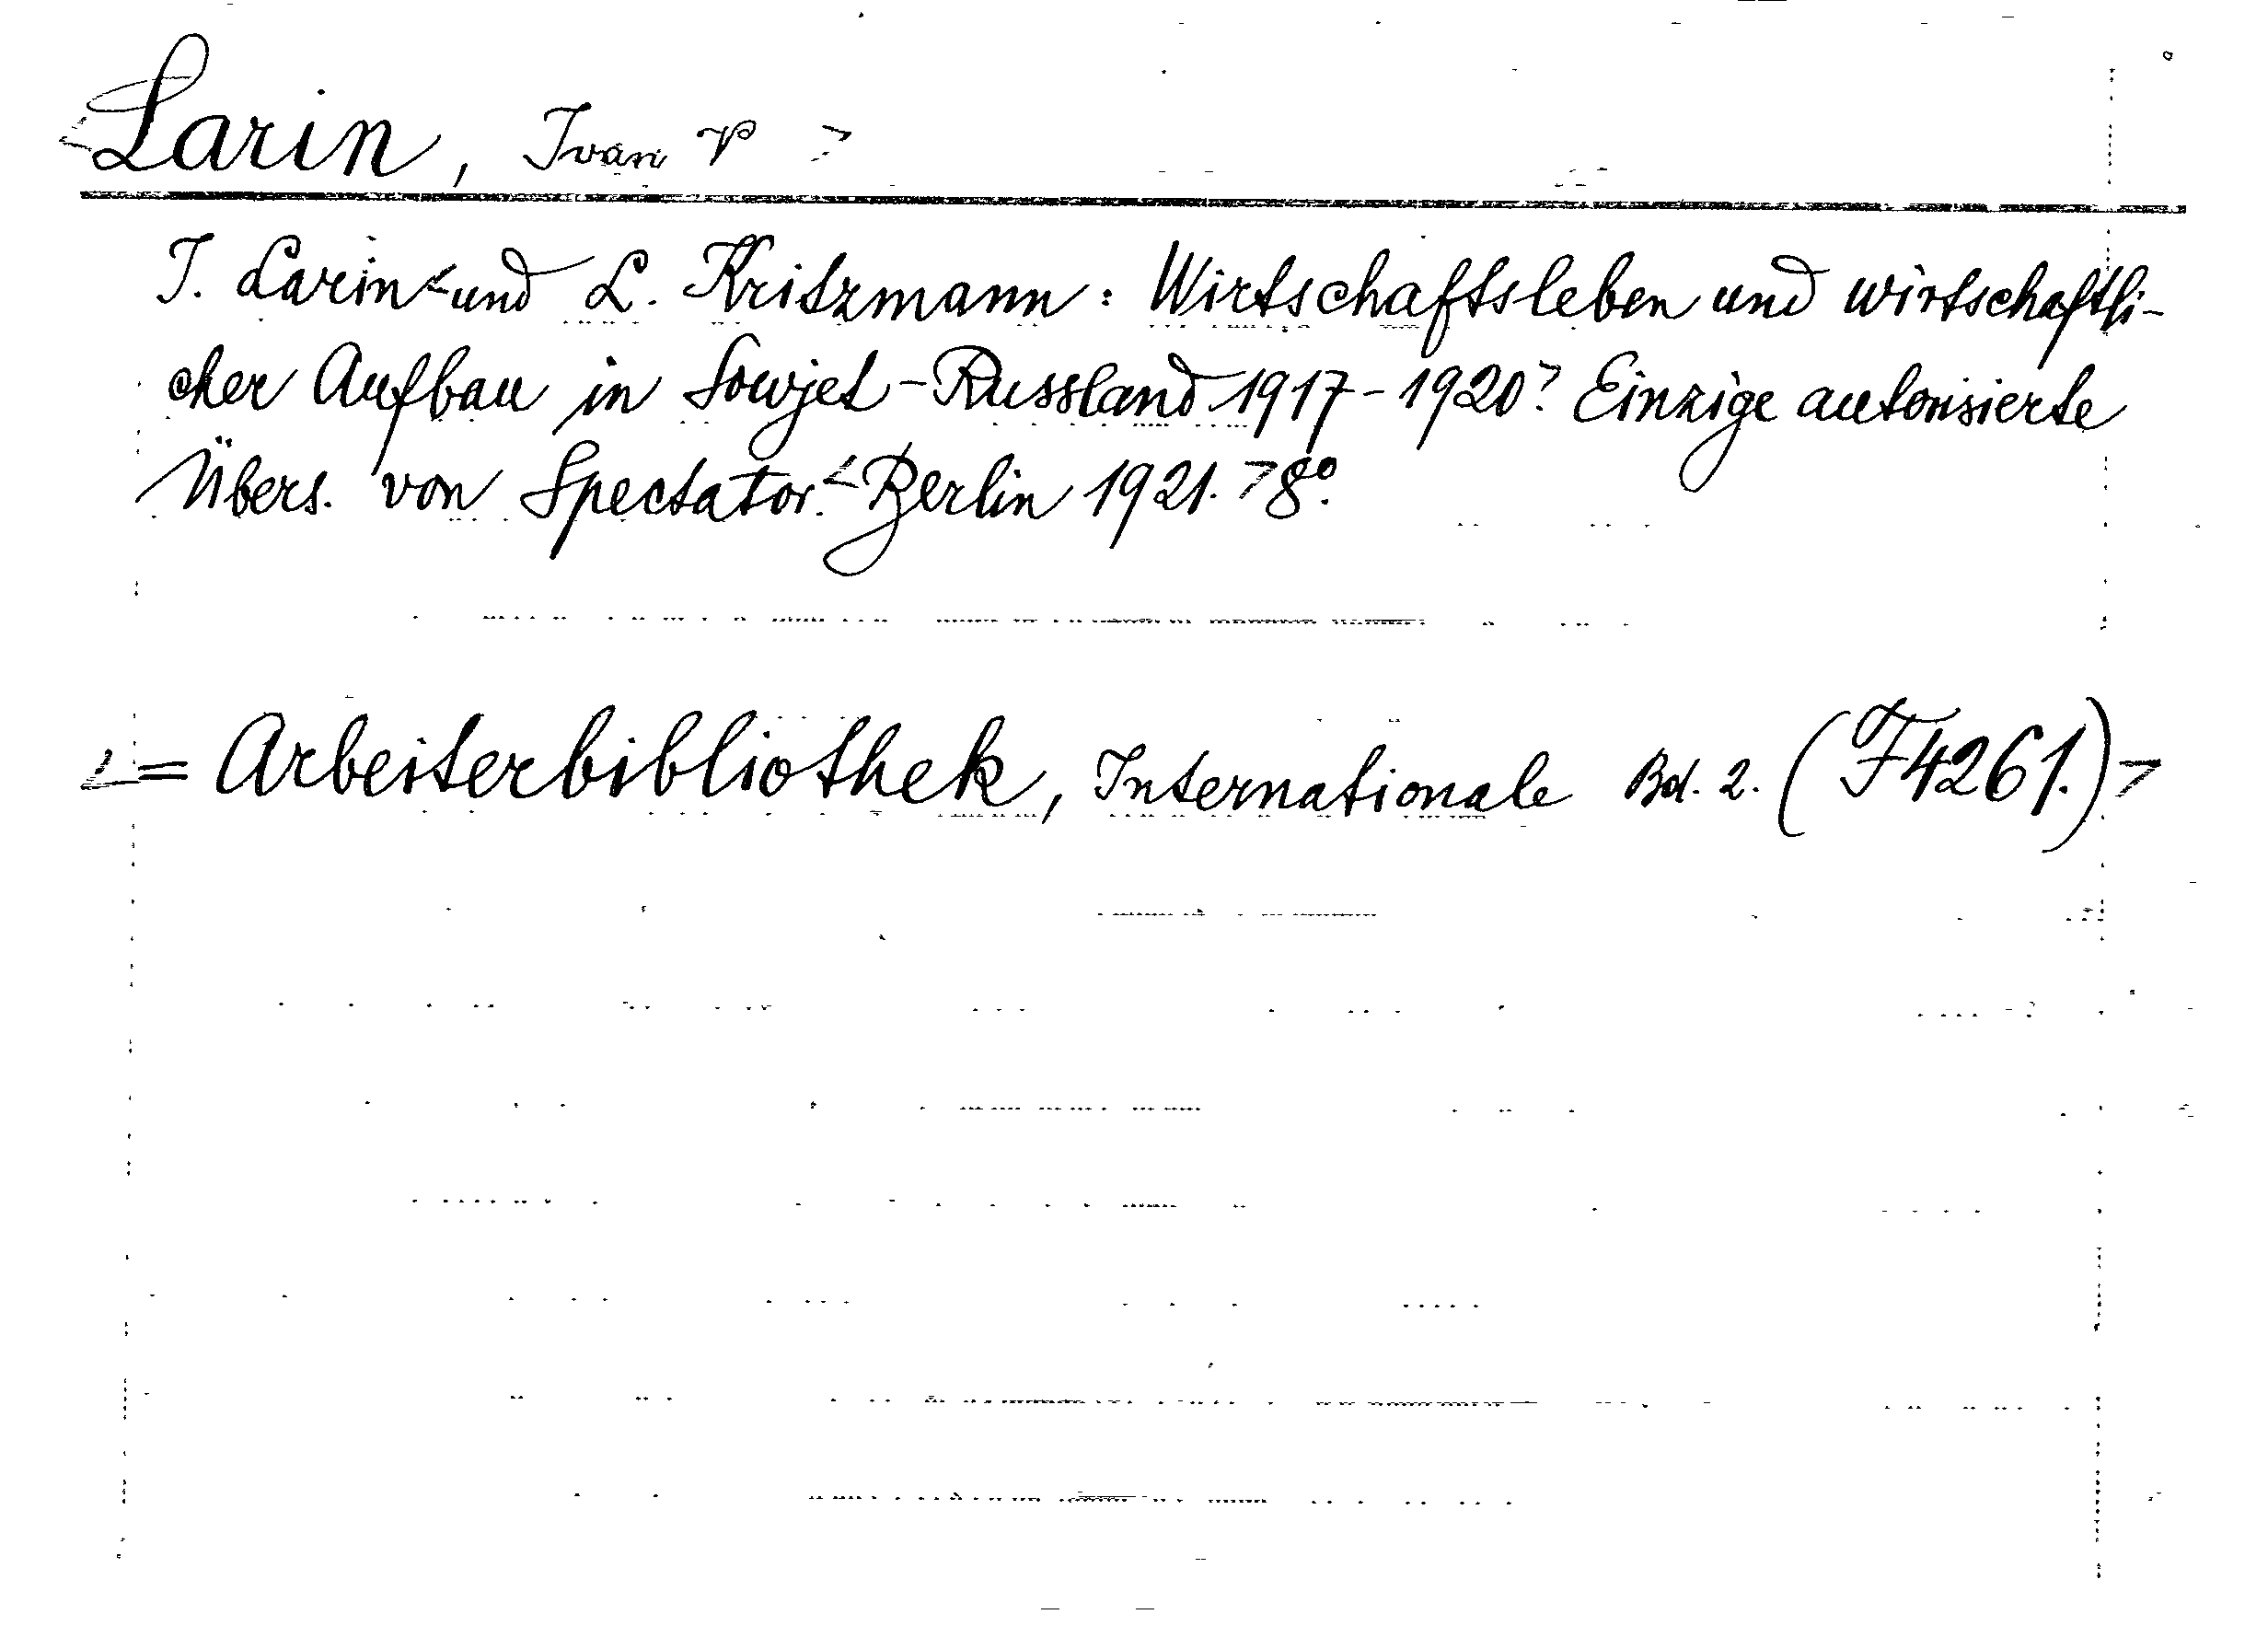 <Larin, Ivan >
J. Larin < und L. Kritzmann: Wirtschaftsleben und wirtschaftli-
cher Aufbau in Sowjet-Russland 1917-1920.> Einzige autorisierte
Übers. von Spectator. < Berlin 1921. > 8°.
<= Arbeiterbibliothek, Internationale Bd. 2. (F4261.) >